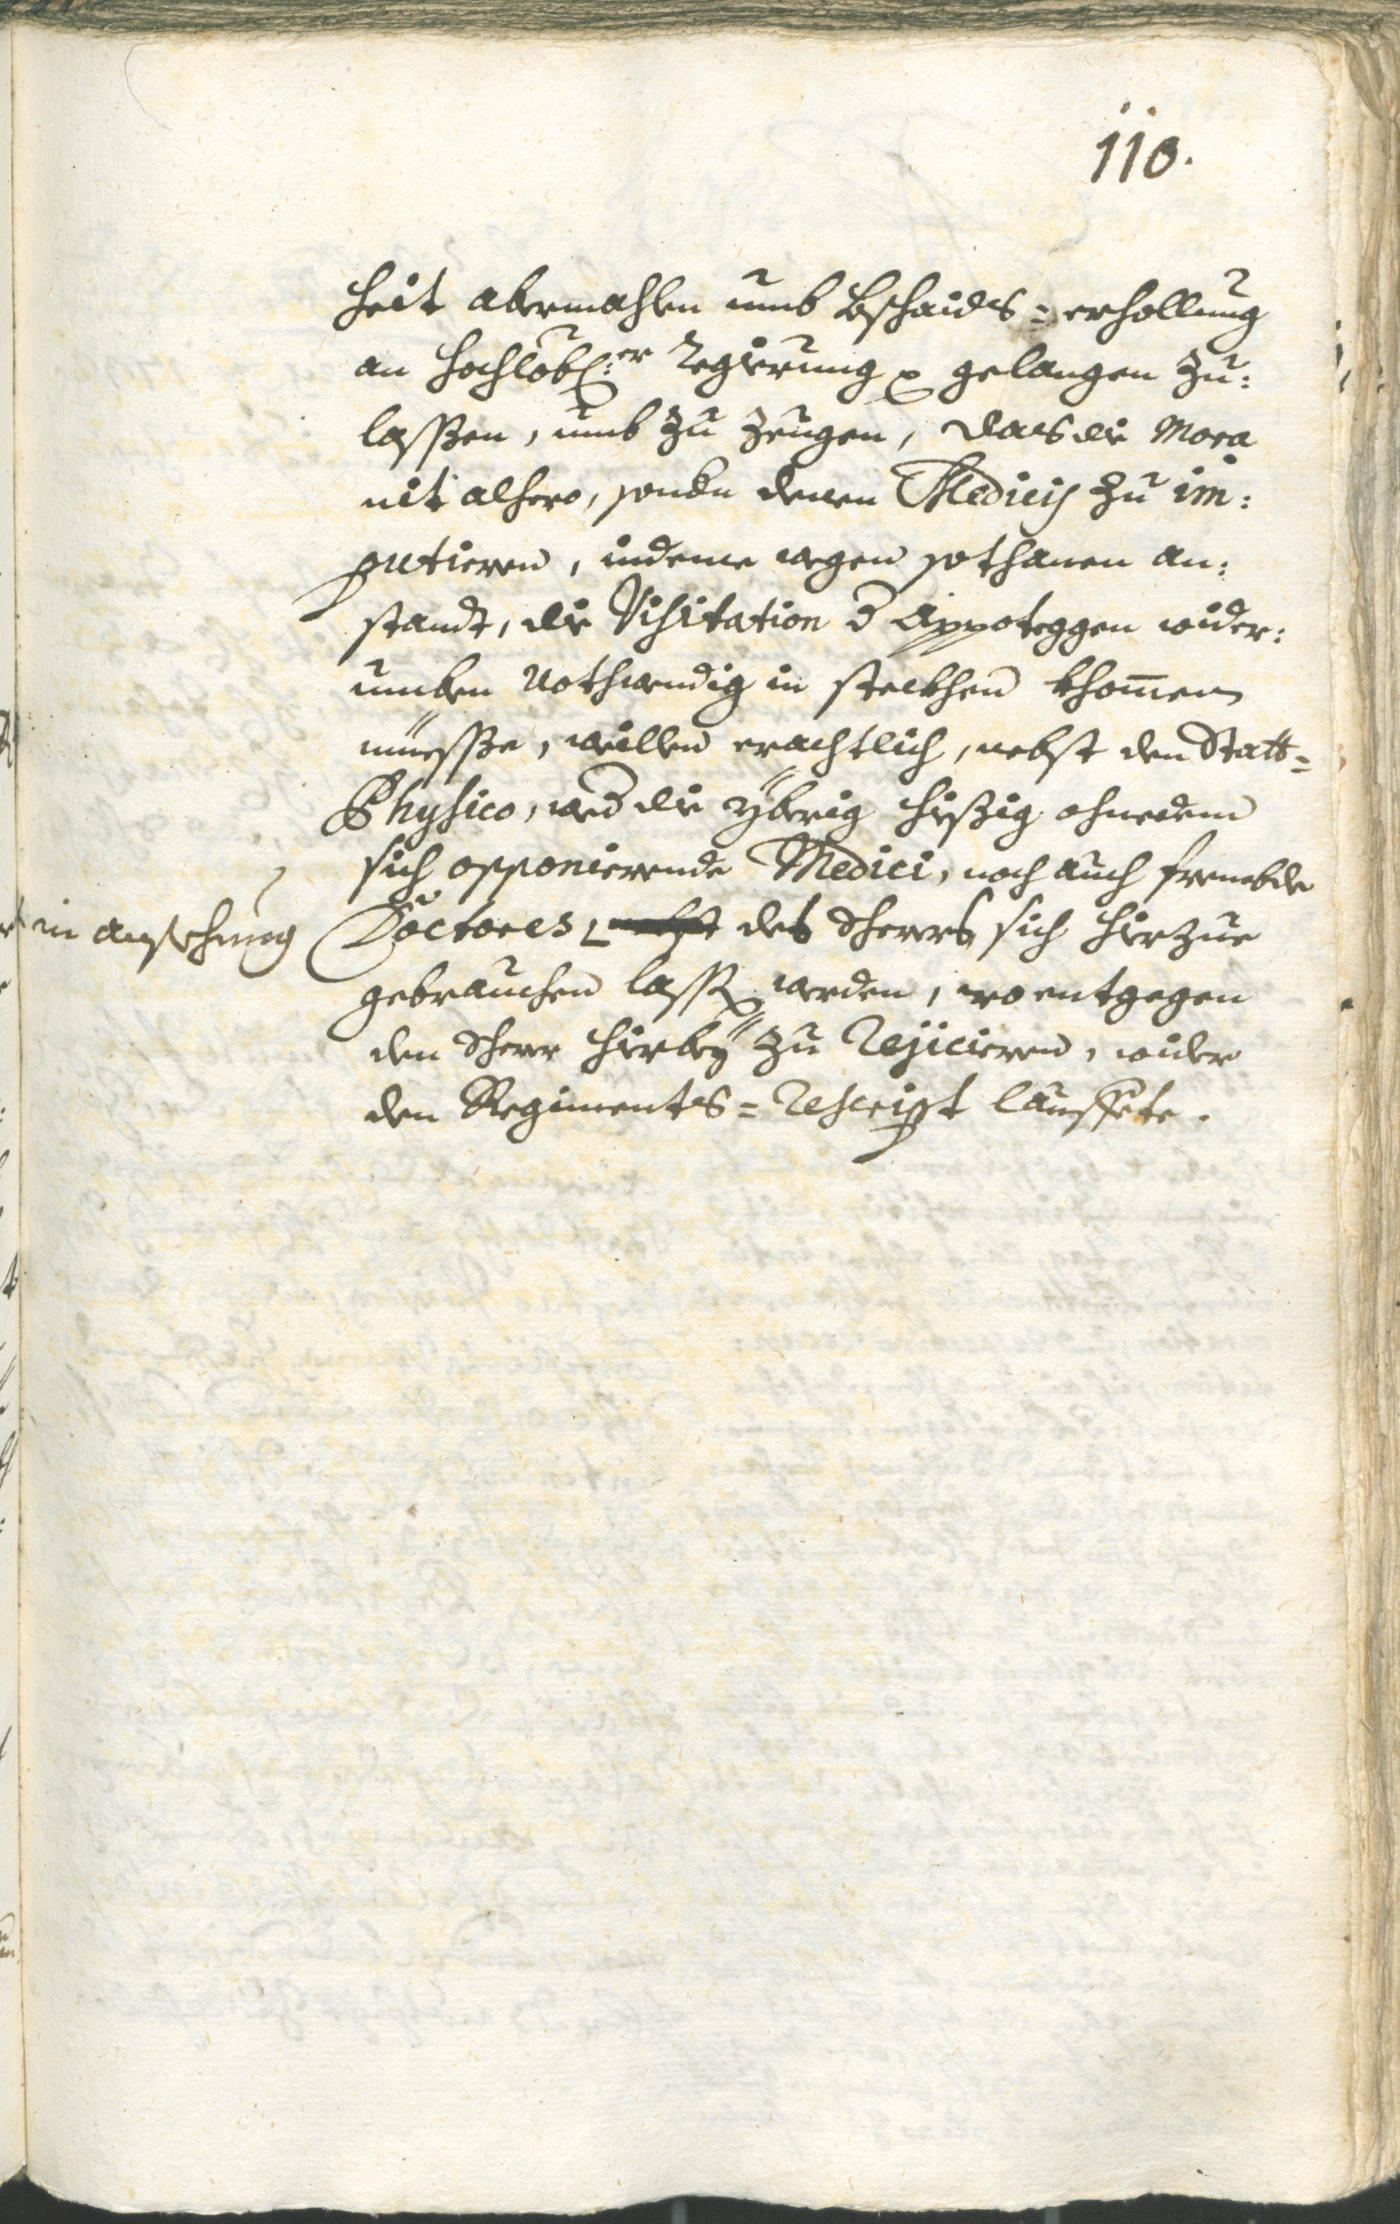 110.
heit abermahlen umb Bschaids=erhollung
an hochlöbl:er Regierung gelangen zu:
lassen, umb zu zeugen, dass die Mora
nit alhero, sondern denen Medicis zu im:
putieren, indeme wegen sothanen an:
standt, die Visitation der Appoteggen wider:
umben nothwendig in steckhen khommen
müesse, weillen erachtlich, nebst den Statt=
Physico, weder die yberig hießig ohnedem
sich opponierende Medici, noch auch frembde
in ansehung
Doctores, des Scherrs sich hierzue
gebrauchen lassen werden, wo entgegen
den Scherr hierbey zu Rejicieren, wider
den Regiments=Rescript lauffete.